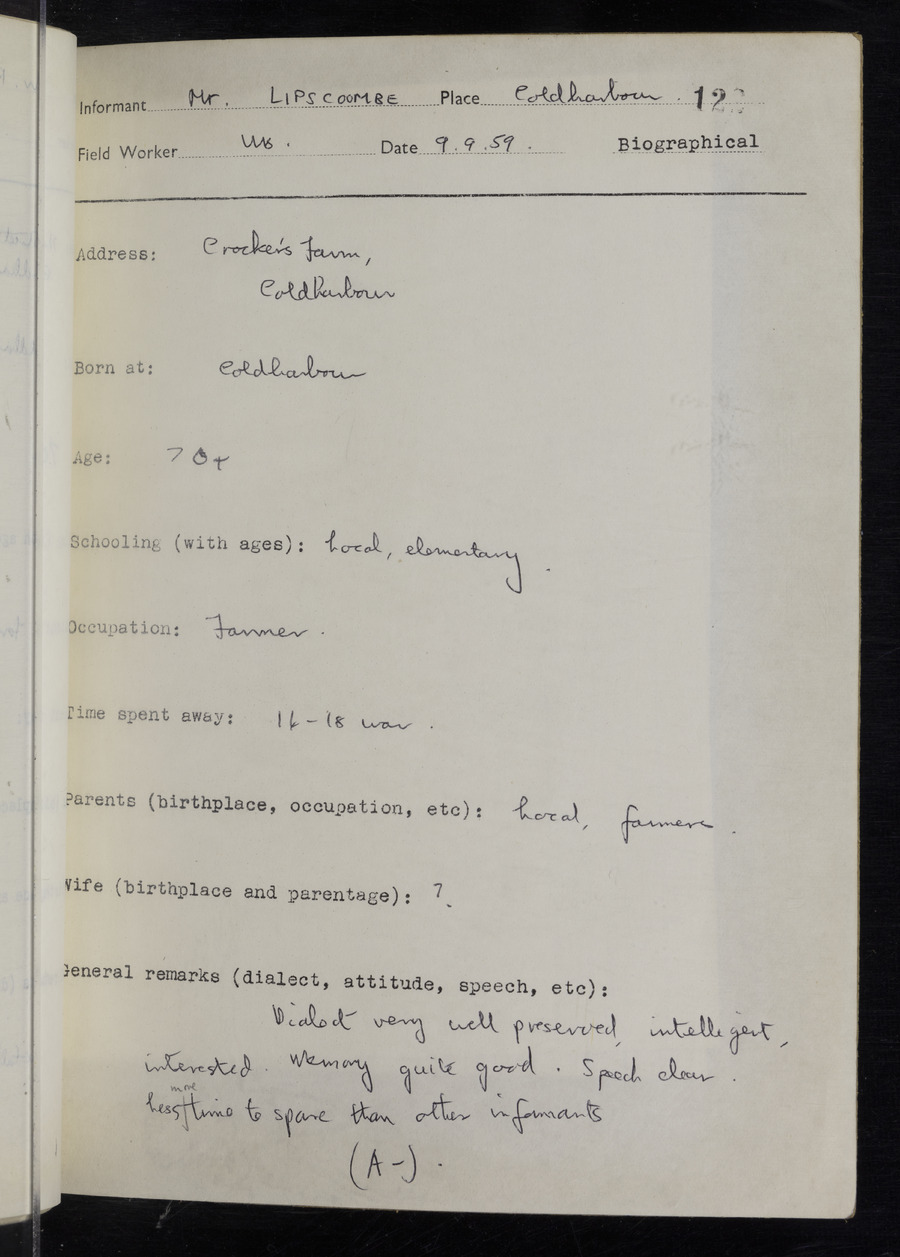 Informant Mr. LIPSCOOMBE Place Coldharbour. 12
Field Worker Date 9.9.59. Biographical
Address: Crocker's Farm,
Coldharbour
Born at: Coldharbour
Age: 70+
Schooling (with ages): Local, elementary.
Occupation: Farmer.
Time spent away: 14-18 war.
Parents (birthplace, occupation, etc): Local, farmers.
Wife (birthplace and parentage): ?
General remarks (dialect, attitude, speech, etc):
Dialect very well preserved, intelligent,
interested. Memory quite good. Speech clear.
more
Less time to spare than other informants
(A-).